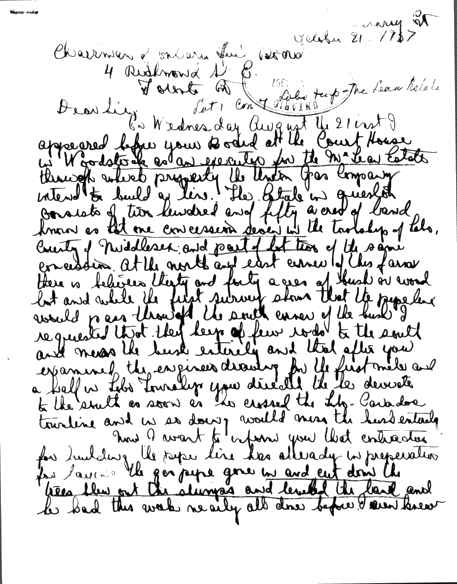 October 21, 1957
Chairman of Ontario Fuel Board
4 Richmond St E.
Toronto Ont
Lobo twp - The McLean Estate
Dear Sir, Lot 1 Con 7
On Wednesday August the 21 inst I
appeared before your Board at the Court House
in Woodstock as an executor for the McLean Estate
through whose property the Union Gas Company
intend to build a line. The Estate in question
consists of two hundred and fifty acres of land
known as lot one concession seven in the township of Lobo,
County of Middlesex and part of lot two of the same
concession. At the north and east corner of this farm
there is between thirty and forty acres of bush or wood
lot and while the first survey shows that the pipe line
would pass through the south corner of the bush I
requested that they keep a few rods to the south
and miss the bush entirely and that after you
examined the engineers drawing for the first mile and
a half in Lobo Township you directed the be deviate
to the south as soon as he crossed the Lobo-Caradoc
townline and in so doing would miss the bush entirely
Now I want to inform you that contractor
for building the pipe line has already in preparation
for laying the gas pipe gone in and cut down the
trees blew out the stumps and leveled the land and
he had this work nearly all done before I even knew